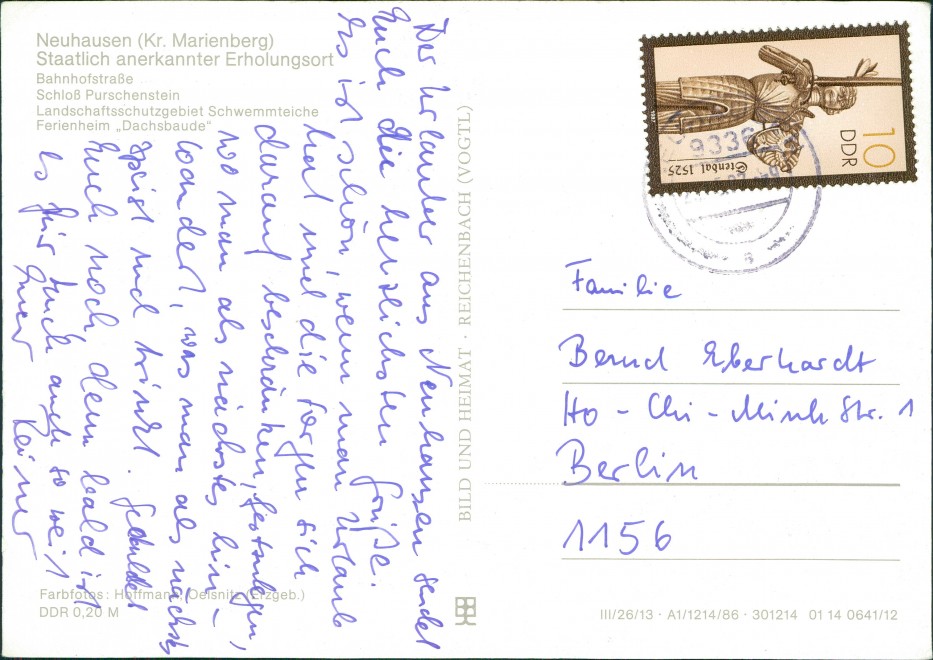 Neuhausen (Kr. Marienberg)
Staatlich anerkannter Erholungsort
Bahnhofstraße
Schloß Purschenstein
Landschaftsschutzgebiet Schwemmteiche
Ferienheim „Dachsbaude"
Der Urlauber aus Neuhausen sendet
Euch die herzlichsten Grüße.
Es ist schön, wenn man Urlaub
hat und die Sorgen sich
darauf beschränken, festzulegen,
wo man als nächstes hin-
wandert, was man als nächstes
speist und trinkt. Geduldet
Euch noch, denn bald ist
es für Euch auch so weit
Euer Heiner
Farbfotos: Hoffmann, Oelsnitz (Erzgeb.)
DDR 0,20 M
BILD UND HEIMAT · REICHENBACH (VOGTL)
10
DDR
Stendal 1525
1987
9336
Familie
Bernd Eberhardt
Ho-Chi-Minh Str. 1
Berlin
1156
III/26/13 · A1/1214/86 · 301214 01 14 0641/12